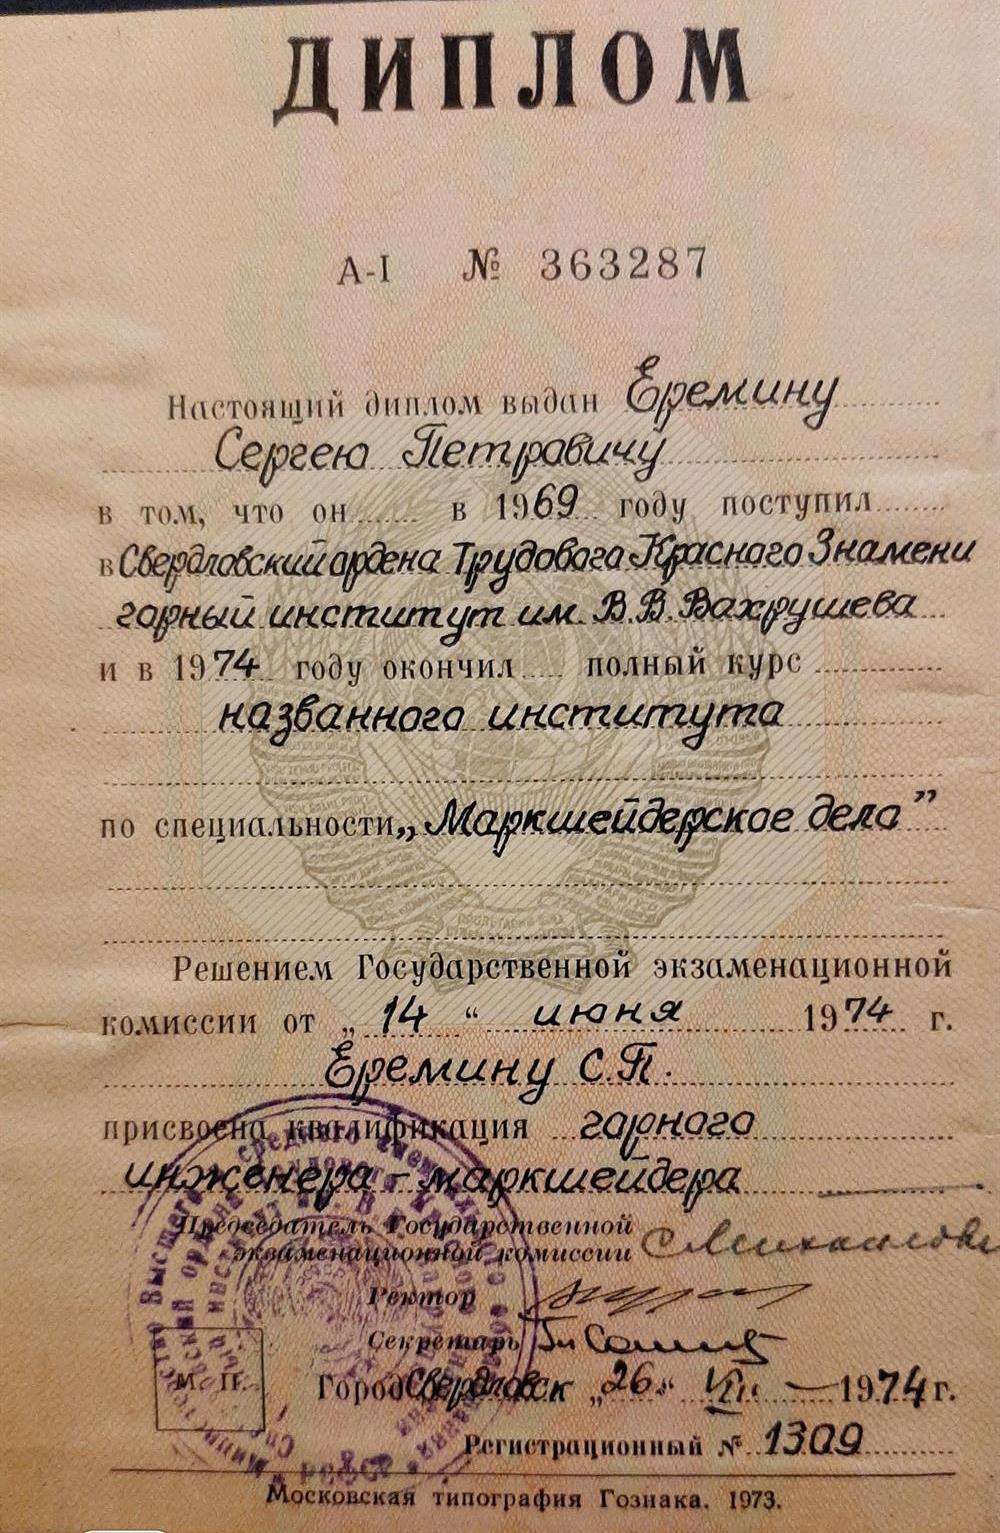 ДИПЛОМ
А-I № 363287
Настоящий диплом выдан Еремину
Сергею Петровичу
в том, что он в 1969 году поступил
в Свердловский ордена Трудового Красного Знамени
горный институт им. В.В. Вахрушева
и в 1974 году окончил полный курс
названного института
по специальности „Маркшейдерское дело”
Решением Государственной экзаменационной
комиссии от „14“ июня 1974 г.
Еремину С.П.
присвоена квалификация горного
инженера - маркшейдера
Председатель Государственной
экзаменационной комиссии
Ректор
Секретарь
М. П.
Город Свердловск „26“ 1974 г.
Регистрационный № 1309
Московская типография Гознака. 1973.